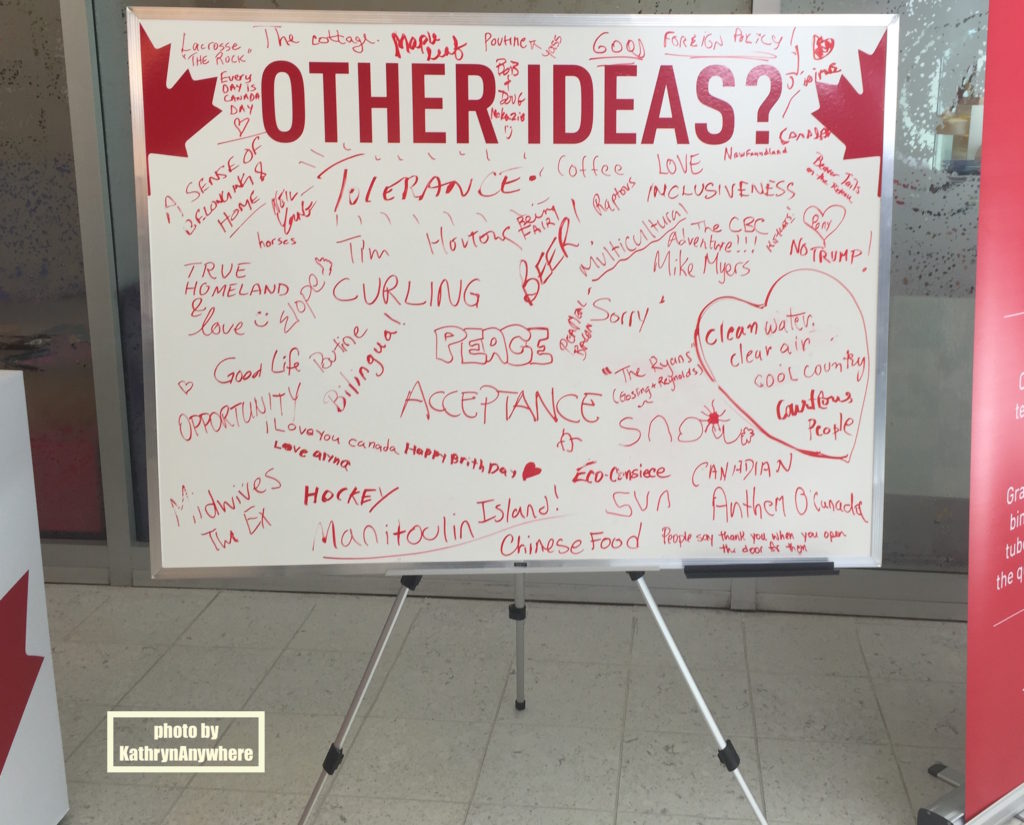 Lacrosse
"THE ROCK"
The cottage.
Maple
Leaf
Poutine
GOOD FOREIGN POLICY!
EVERY
DAY IS
CANADA
DAY
BOB
+
DOUG
McKenzie
OTHER IDEAS?
A SENSE OF
BELONGING &
HOME
NEIL
YOUNG
horses
TOLERANCE
Coffee
LOVE
Newfoundland
Raptors
INCLUSIVENESS
Beaver Tails
Tim Hortons
Being
FAIR
BEER!
Multicultural
The CBC
Adventure!!!
Mike Myers
Pony
NO TRUMP!
TRUE
HOMELAND
&
love
Slopes
CURLING
PEAMEAL
BACON
Sorry
PEACE
Clean water,
clear air
cool country
Courteous
People
Good Life
Poutine
Bilingual!
"The Ryans
(Gosling + Reynolds)
OPPORTUNITY
ACCEPTANCE
SNOW
I Love you canada Happy Brith Day
Love alyna
Eco-Consiece
CANADIAN
Midwives
HOCKEY
SUN
Anthem O'Canada
The Ex
Manitoulin Island!
Chinese Food
People say thank you when you open
the door for them
photo by
KathrynAnywhere
Gra
bin
tube
the q